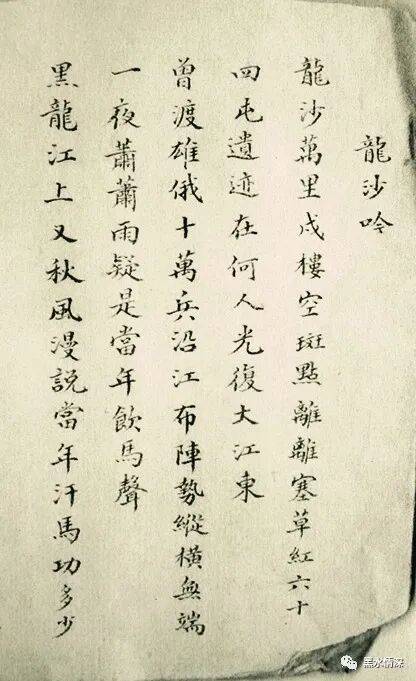 龍沙吟
龍沙萬里戍樓空斑點離離塞草紅六十
四屯遺迹在何人光復大江東
曾渡雄俄十萬兵沿江布陣勢縱橫無端
一夜蕭蕭雨疑是當年飲馬聲
黑龍江上又秋風漫說當年汗馬功多少
黑水情深